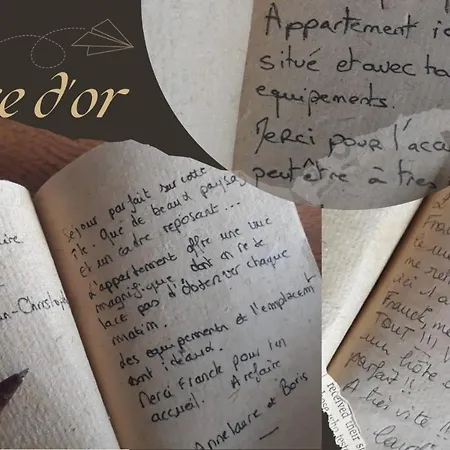 re d'or
Appartement
situé et avec
equipements.
Merci pour l'accu
peut être à très
Séjour parfait sur cette
île. Que de beaux paysag
et un cadre reposant...
L'appartement offre une vue
magnifique dont on ne se
lace pas d'observer chaque
matin.
des equipements et l'emplacemt
sont idéaux.
Merci Franck pour ton
accueil. A refaire
Annelaure et Boris
n-Christoph
ici 1 a
Franck, me
TOUT !!!
un hôte
parfait !!
A très vite !!!
received their s